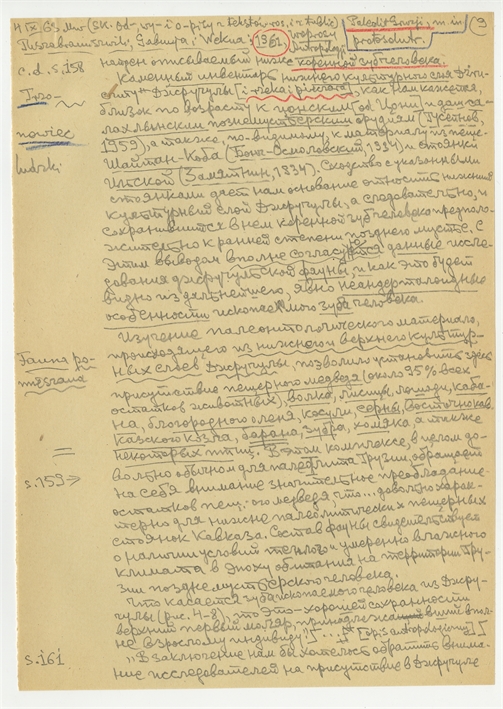 4 IX 63 Mw (SK. od-
Tuszabramiszwili, Gabunija i Wekua: 1961 вопросы антропологии
Paleolit Gruzji, m. in.
9
c.d. s. 158
найден описываемый ниже коренной зуб человека.
Каменный инвентарь нижнего культурного слоя
Джручулы (i rzeka i pieczara), как нам кажется,
близок по возрасту к цонским (од Цони) и
позднемустьерским орудиям
1959), а также, по-видимому, к материалу из пеще-
Шайтан-Коба (Бонч-Осмоловский, 1934) и стоянки
Ильской (Замятнин, 1934). Сходство с указанными
стоянками дает нам основание относить нижний
культурный слой Джручулы, а следовательно, и
сохранившийся в нем коренной зуб человека предполо-
жительно к ранней степени позднего мустье. С
этим выводом вполне согласуются данные иссле-
дования джручульской фауны, и как это будет
видно из дальнейшего, явно неандерталоидные
особенности ископаемого зуба человека.
Trzonowiec ludzki
Изучение палеонтологического материала,
происходящего из нижнего и верхнего культур-
ных слоев Джручулы, позволило установить здесь
присутствие пещерного медведя (около 95% всех
остатков животных), волка, лисицы, лошади, каба-
на, благородного оленя, косули, серны, восточнокав-
казского козла, барана, зубра, хомяка а также
некоторых птиц. В этом комплексе, в целом до-
вольно обычном для палеолита Грузии, обращает
на себя внимание значительное преобладание
остатков пещ.-ого медведя, что... довольно харак-
терно для нижнепалеолитических пещерных
стоянок Кавказа. Состав фауны свидетельствует
о наличии условий теплого и умеренно влажного
климата в эпоху обитания на территории Гру-
зии позднемустьерского человека.
Fauna pomieszana
s. 159 →
Что касается зуба ископаемого человека из Джру-
чулы (рис. 1-2), то это - хорошей сохранности
верхний первый моляр, принадлежавший вполне
не взрослому индивиду [...]
s. 161
"В заключение нам бы хотелось обратить внима-
ние исследователей на присутствие в Джручуле